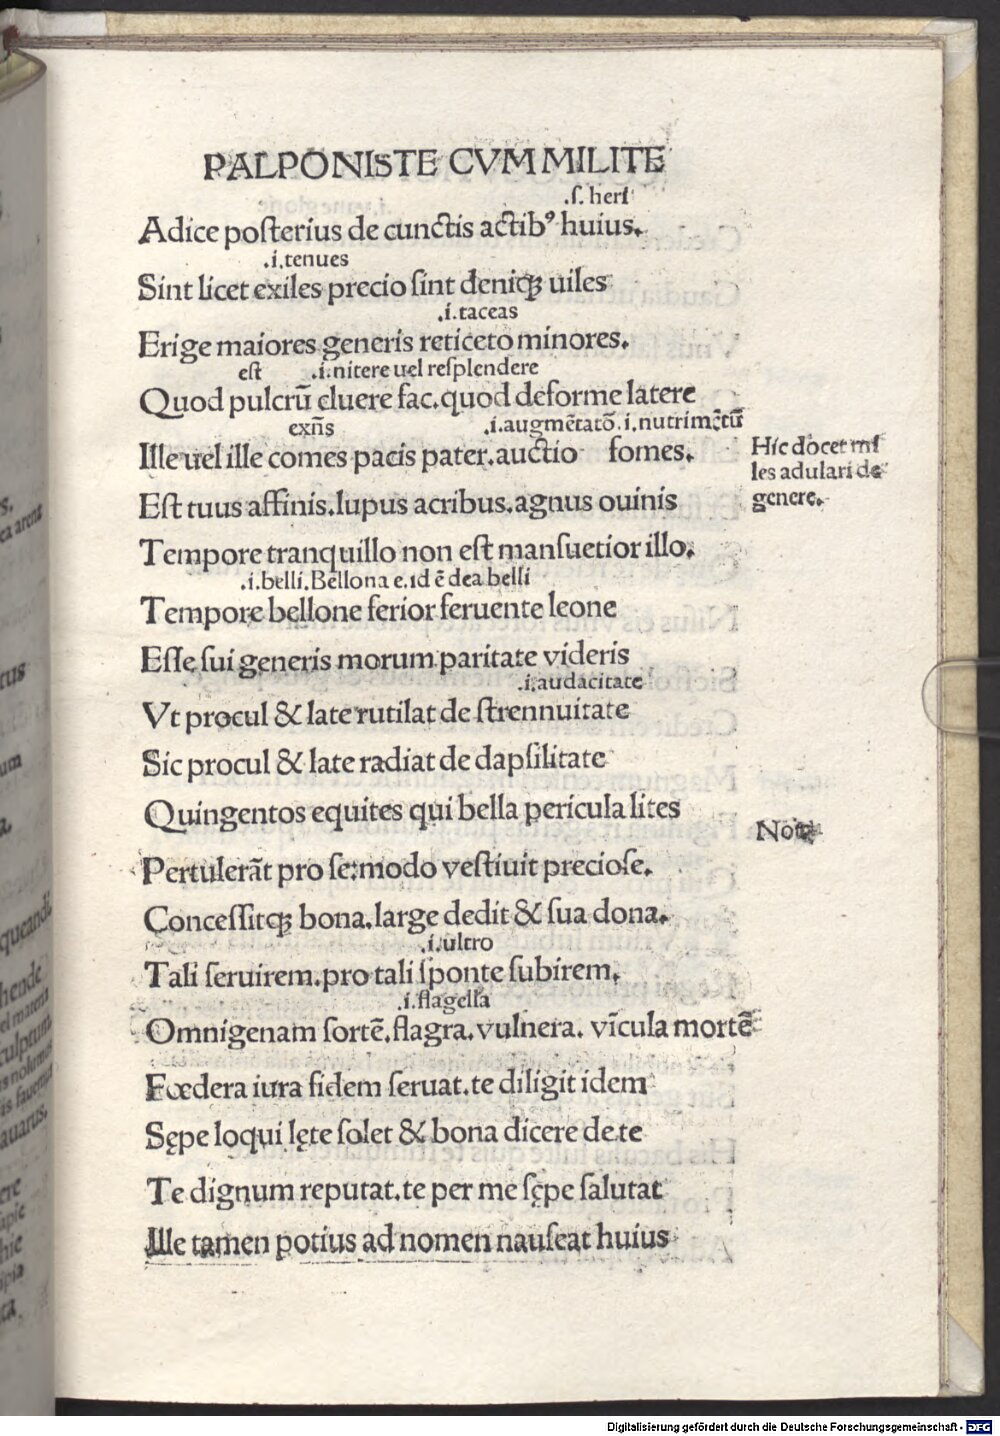 PALPONISTE CVM MILITE
.ſ. heri
Adice poſterius de cunctis actibꝰ huius.
.i. tenues
Sint licet exiles precio ſint deniqꝫ uiles
.i. taceas
Erige maiores generis reticeto minores.
eſt .i. nitere uel reſplendere
Quod pulcrū cluere fac. quod deforme latere
exñs .i. augmētatō. i. nutrimētū
Ille uel ille comes pacis pater. auctio fomes.
Hic docet mi
les adulari de
genere.
Eſt tuus affinis. lupus acribus. agnus ouinis
Tempore tranquillo non eſt manſuetior illo.
.i. belli. Bellona e. id ē dea belli
Tempore bellone ferior feruente leone
Eſſe ſui generis morum paritate videris
.i. audacitate
Vt procul & late rutilat de ſtrennuitate
Sic procul & late radiat de dapſilitate
Quingentos equites qui bella pericula lites
Nota
Pertulerāt pro ſe: modo veſtiuit precioſe.
Conceſſitqꝫ bona. large dedit & ſua dona.
.i. ultro
Tali ſeruirem. pro tali ſponte ſubirem.
.i. flagella
Omnigenam ſortē. flagra. vulnera. vīcula mortē
Fœdera iura fidem ſeruat. te diligit idem
Sępe loqui lęte ſolet & bona dicere de te
Te dignum reputat. te per me ſępe ſalutat
Ille tamen potius ad nomen nauſeat huius
Digitalisierung gefördert durch die Deutsche Forschungsgemeinschaft - DFG